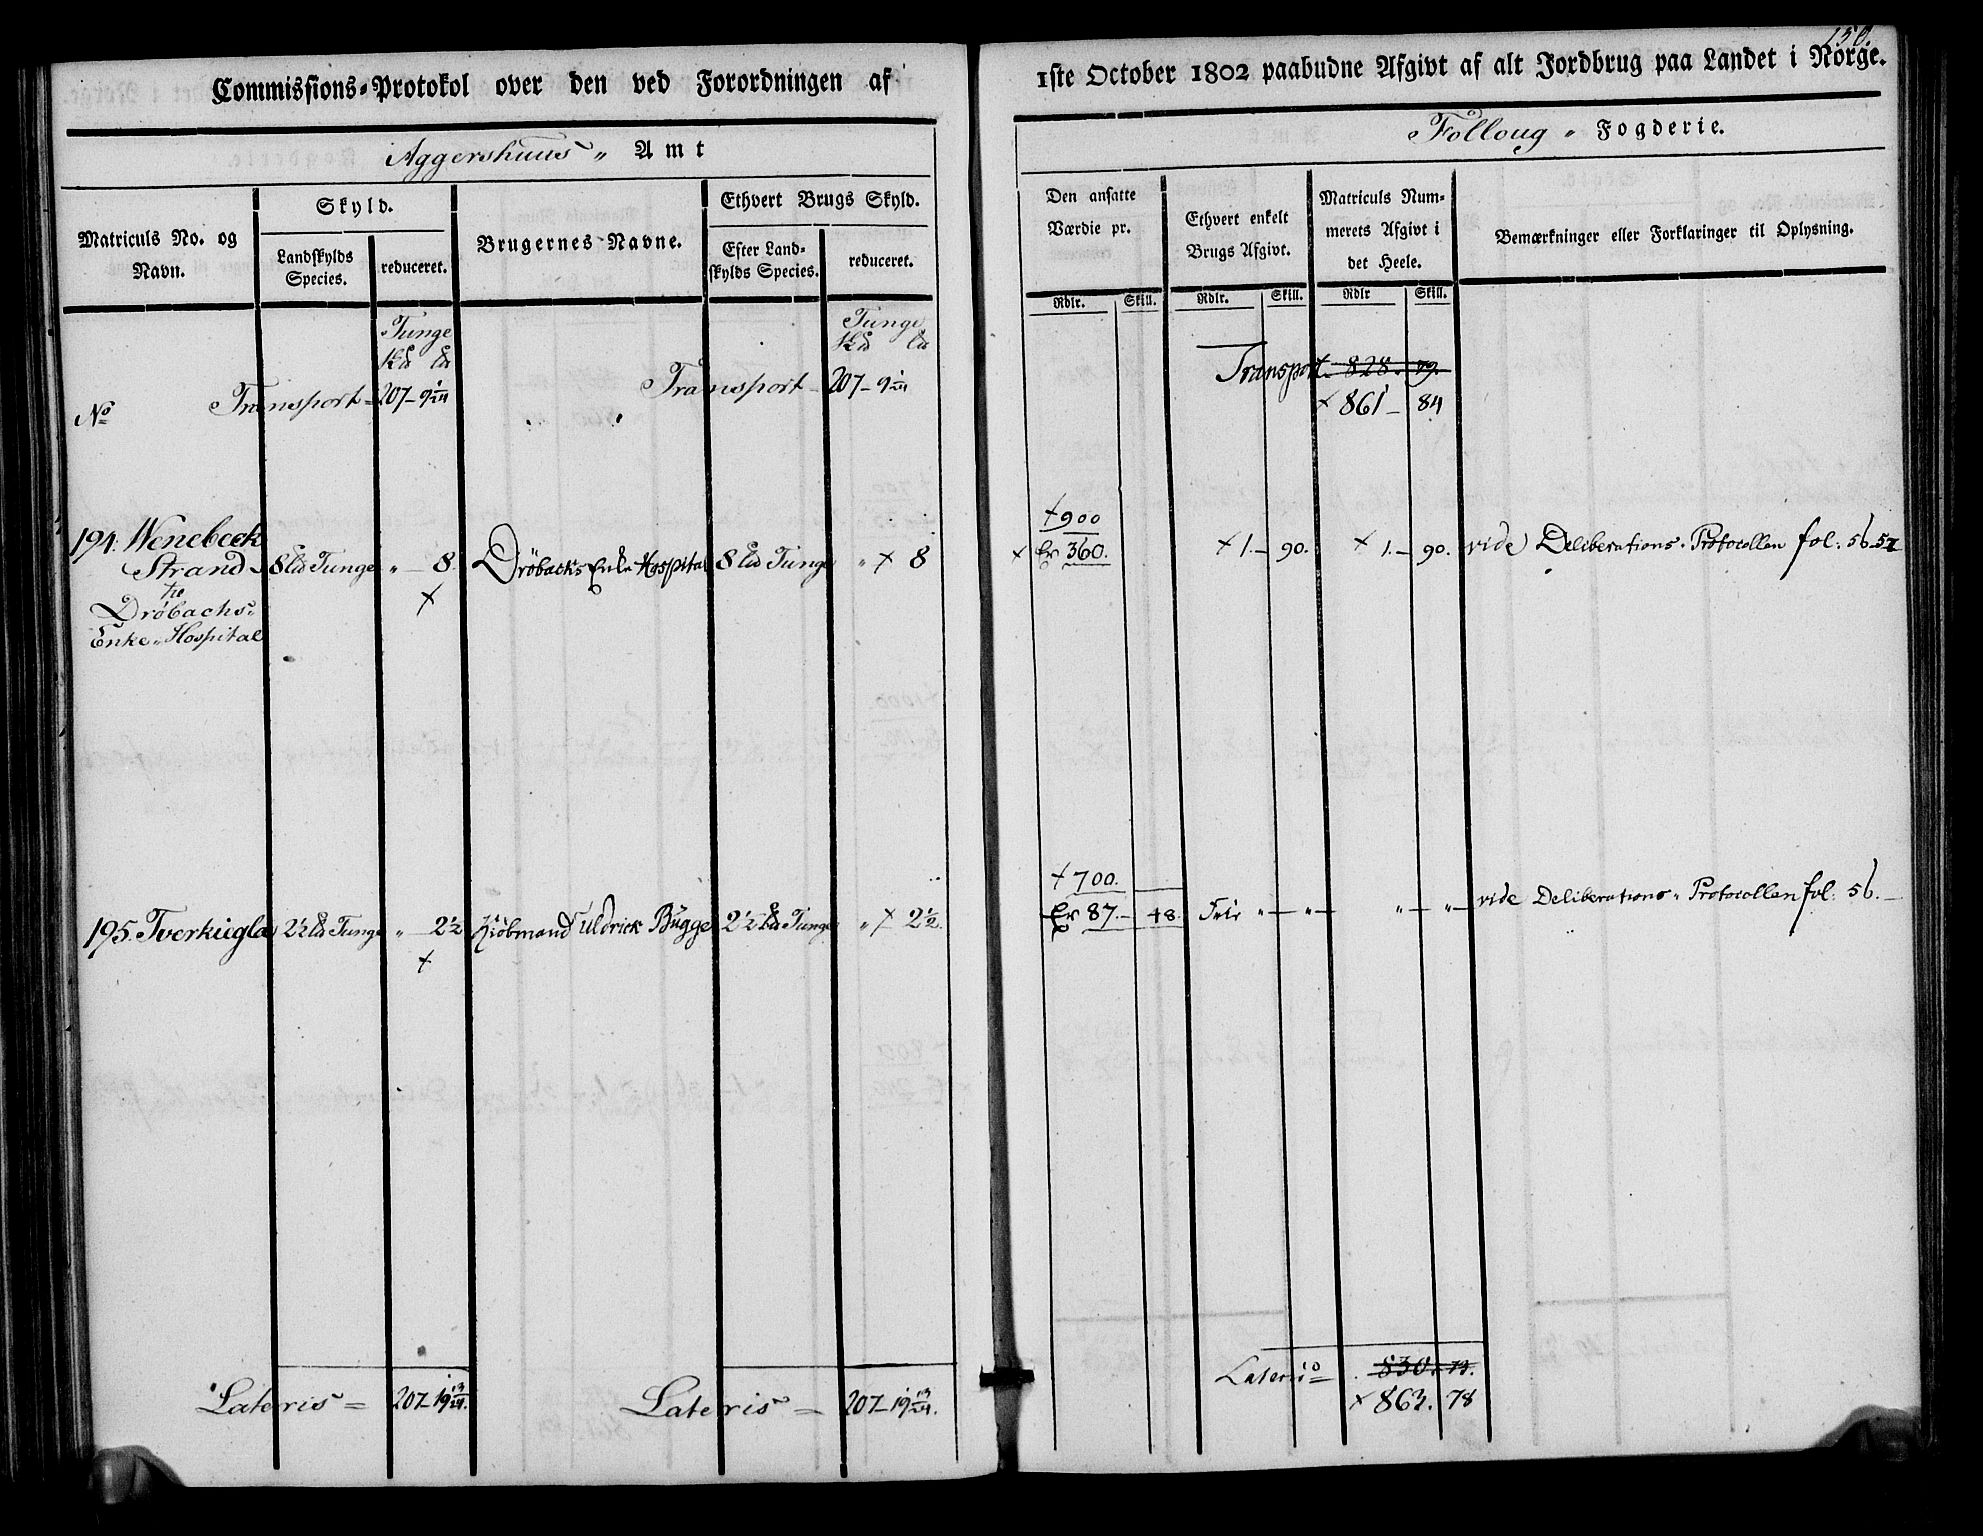 150.
Commissions-Protokol over den ved Forordningen af 1ste October 1802 paabudne Afgivt af alt Jordbrug paa Landet i Norge.
Aggershuus „ Amt
Folloug „ Fogderie.
Matriculs No. og Navn.
Skyld.
Landskylds Species.
reduceret.
Brugernes Navne.
Ethvert Brugs Skyld.
Efter Landskylds Species.
reduceret.
Den ansatte Værdie pr.
Ethvert enkelt Brugs Afgivt.
Matriculs Nummerets Afgivt i det Heele.
Bemærkninger eller Forklaringer til Oplysning.
Rdlr. Skill. Rdlr. Skill. Rdlr Skill.
Tunge Tunge
No Transport — 207 — 9 1/24 Transport — 207 — 9 1/24 Transport — 828. 79.
× 861 — 84
+ 900
194. Wenebeck Strand 8 Tunge „ — 8. Dröbacks Enke Hospital 8 Tunge „ × 8 × Er 360. × 1. — 90. × 1. — 90. vide Deliberations-Protocollen fol: 56-57
til
Dröbachs
Enke-Hospital
+ 700.
195. Tverkugla 2½ Tunge „ 2½ Kiöbmand Uldrick Bugge 2½ Tunge „ × 2½. Er 87. — 48. Frie „ — „ — „ — „ — vide Deliberations-Protocollen fol. 56. —
Lateris = 207 — 19 13/24. Lateris = 207 — 19 13/24. Lateris 830. 73.
× 863. 78